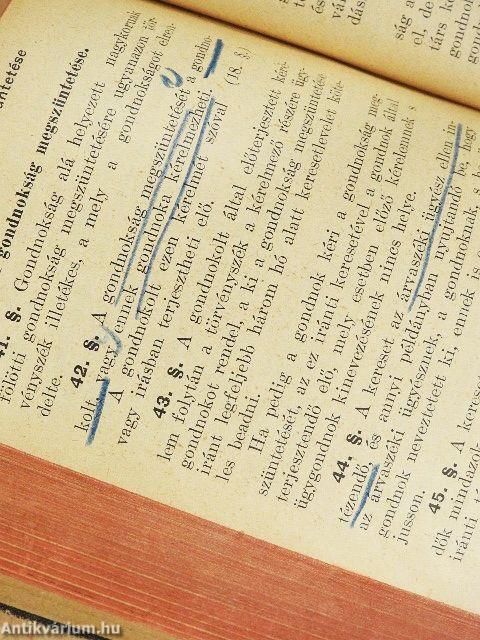 gondnokság megszüntetése.
41. §. Gondnokság alá helyezett nagykorúak
fölötti gondnokság megszüntetésére ugyanazon tör-
vényszék illetékes, a mely a gondnokságot elren-
delte.
42. §. A gondnokság megszüntetését a gondno-
kolt, vagy ennek gondnoka kérelmezheti.
A gondnokolt ezen kérelmét szóval
vagy irásban terjesztheti elő. (18. §.)
43. §. A gondnokolt által előterjesztett kére-
lem folytán a törvényszék a kérelmező részére ügy-
gondnokot rendel, a ki a gondnokság megszüntetése
iránt legfeljebb három hó alatt keresetlevelet köte-
les beadni.
Ha pedig a gondnok kéri a gondnokság meg-
szüntetését, az ez iránti keresetével a gondnok által
terjesztendő elő, mely esetben előző kérelemnek s
ügygondnok kinevezésének nincs helye.
44. §. A kereset az árvaszéki ügyész ellen in-
tézendő, és annyi példányban nyujtandó be, hogy
az árvaszéki ügyésznek, a gondnoknak s
gondnok neveztetett ki, ennek is
jusson.
45. §. A kereset
dők mindazok
iránti
Antikvárium.hu